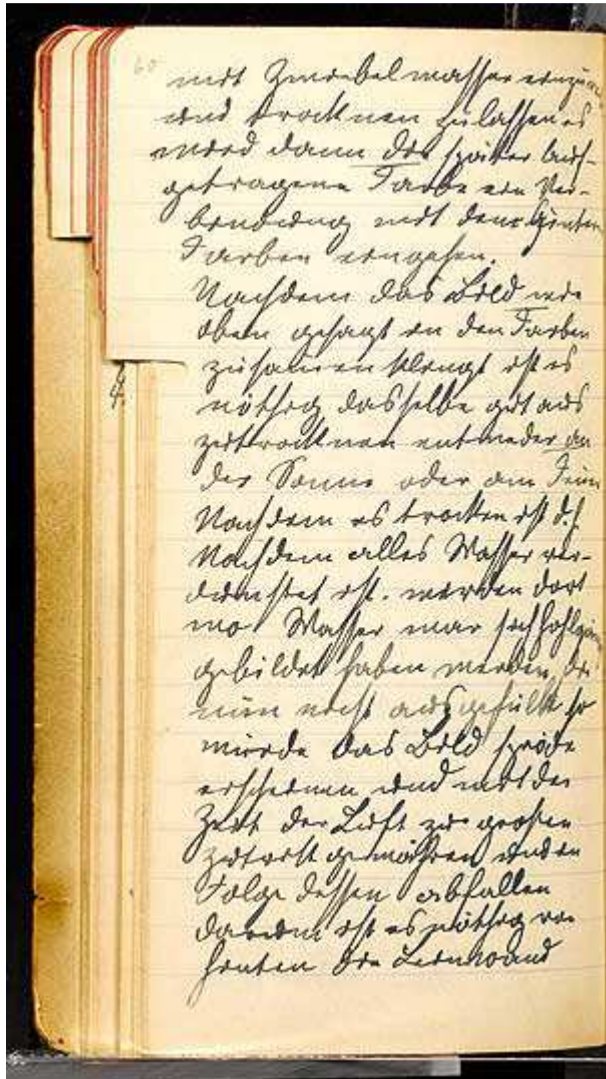 60
mit Zwiebelwasser
und trocknen zulassen es
wird dann die später auf-
getragene Farbe ein Ver-
bindung mit den hinten
Farben eingehen.
Nachdem das Bild wie
oben gesagt in den Farben
zusamen klingt ist es
nöthig dasselbe gut aus
zutrocknen entweder an
der Sonne oder am
Nachdem es trocken ist d.h
Nachdem alles Wasser ver-
dunstet ist. werden dort
wo Wasser war sich
gebildet haben werden, die
nun nicht ausgefüllt so
würde das Bild spröde
erscheinen und mit der
Zeit der Luft zu großen
zutritt gewähren und in
Folge dessen abfallen
darum ist es nöthig von
hinten die Leinwand